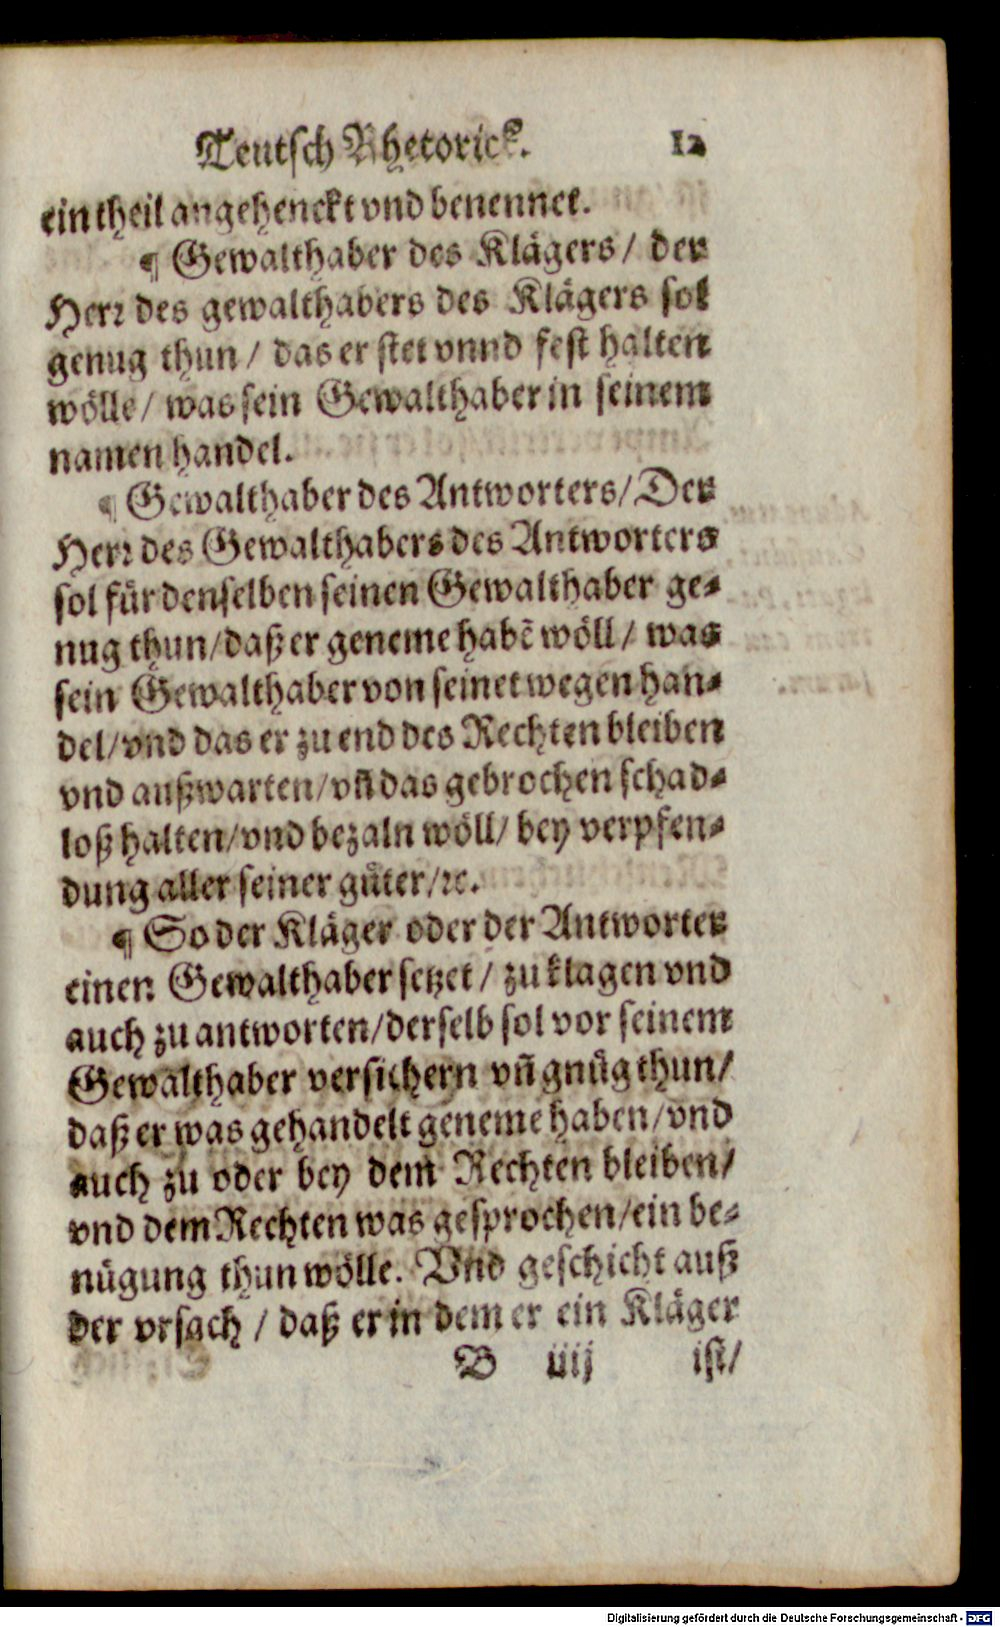 Teutsch Rhetorick. 12
ein theil angehenckt vnd benennet.
¶ Gewalthaber des Klägers/ der
Herr des gewalthabers des Klägers sol
genug thun/ das er stet vnnd fest halten
wölle/ was sein Gewalthaber in seinem
namen handel.
¶ Gewalthaber des Antworters/ Der
Herr des Gewalthabers des Antworters
sol für denselben seinen Gewalthaber ge⸗
nug thun/ daß er geneme habẽ wöll/ was
sein Gewalthaber von seinet wegen han⸗
del/ vnd das er zu end des Rechten bleiben
vnd außwarten/ vñ das gebrochen schad⸗
loß halten/ vnd bezaln wöll/ bey verpfen⸗
dung aller seiner güter/ ꝛc.
¶ So der Kläger oder der Antworter
einen Gewalthaber setzet/ zu klagen vnd
auch zu antworten/ derselb sol vor seinem
Gewalthaber versichern vñ gnüg thun/
daß er was gehandelt geneme haben/ vnd
auch zu oder bey dem Rechten bleiben/
vnd dem Rechten was gesprochen/ ein be⸗
nügung thun wölle. Vnd geschicht auß
der vrsach/ daß er in dem er ein Kläger
B iiij ist/
Digitalisierung gefördert durch die Deutsche Forschungsgemeinschaft - DFG